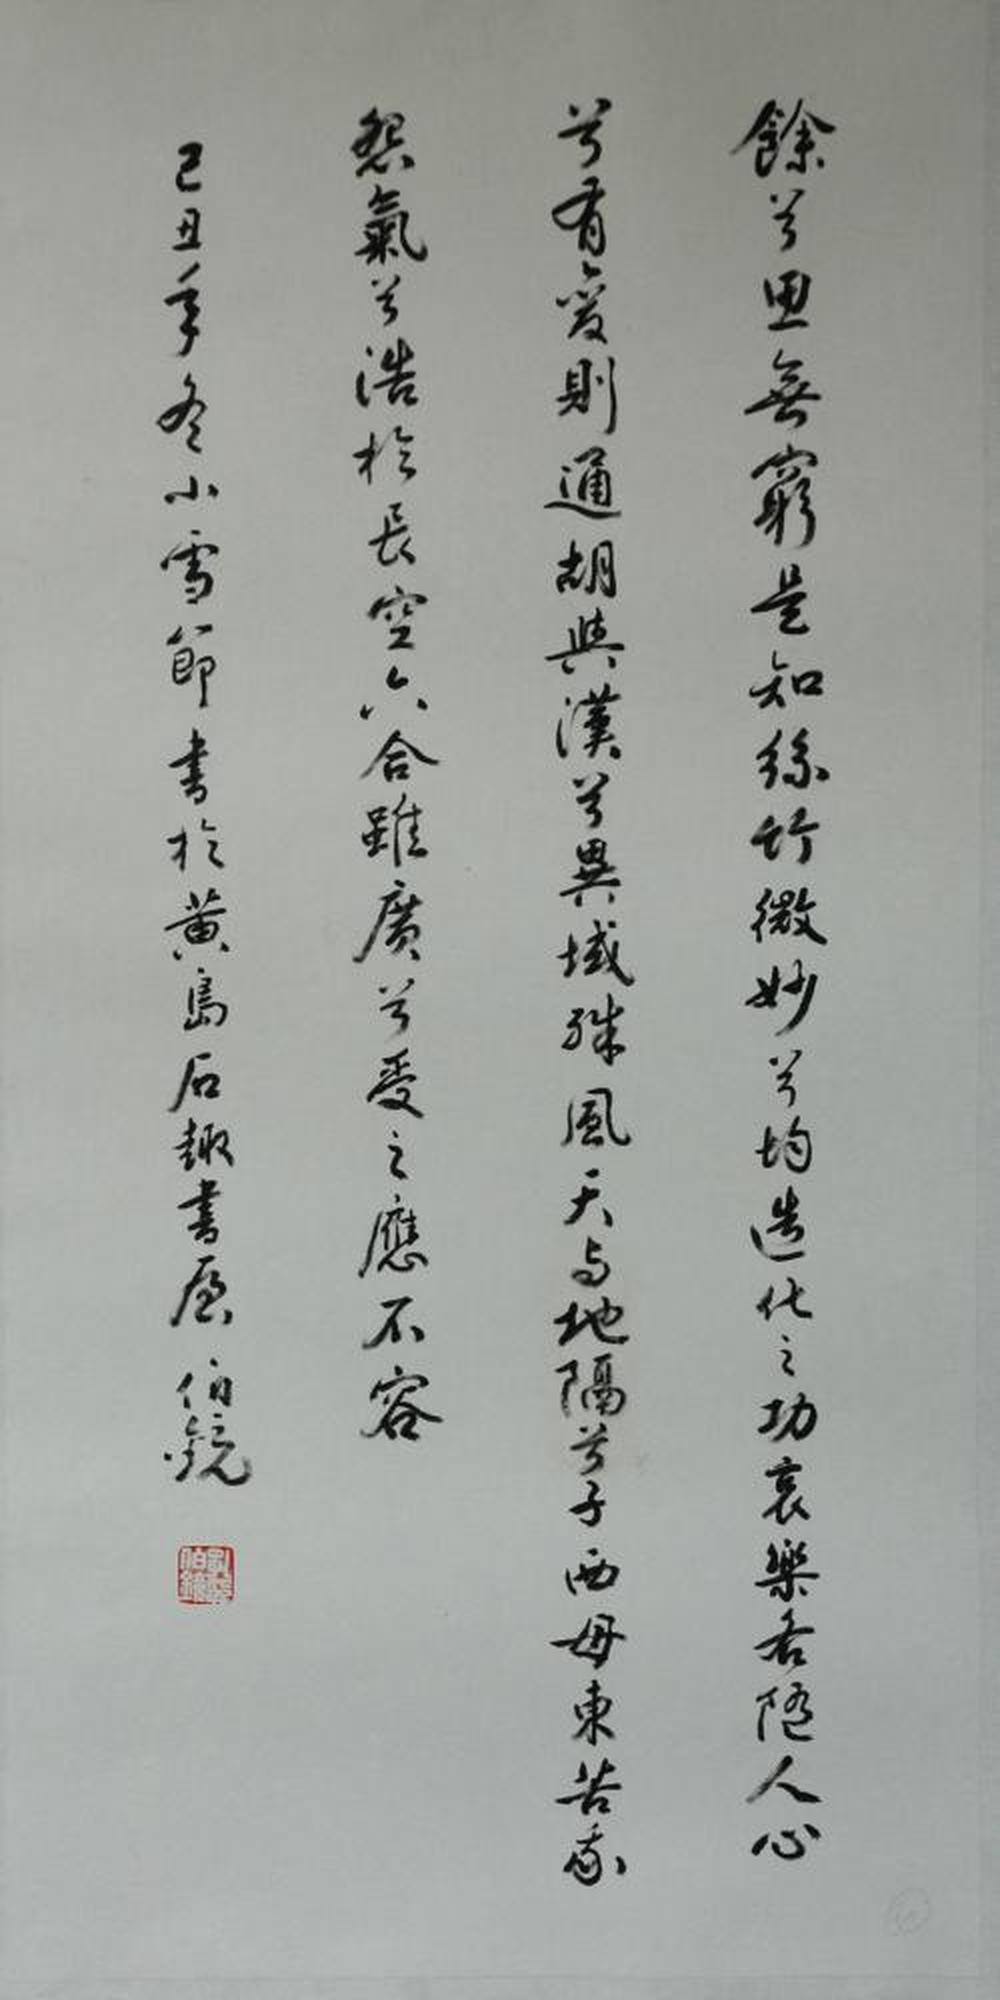 餘兮思無窮是知絲竹微妙兮均造化之功哀樂各隨人心
兮有變則通胡與漢兮異域殊風天与地隔兮子西母東苦我
怨氣兮浩於長空六合雖廣兮受之應不容
己丑年冬小雪節書於黄島石趣書屋 伯鏡